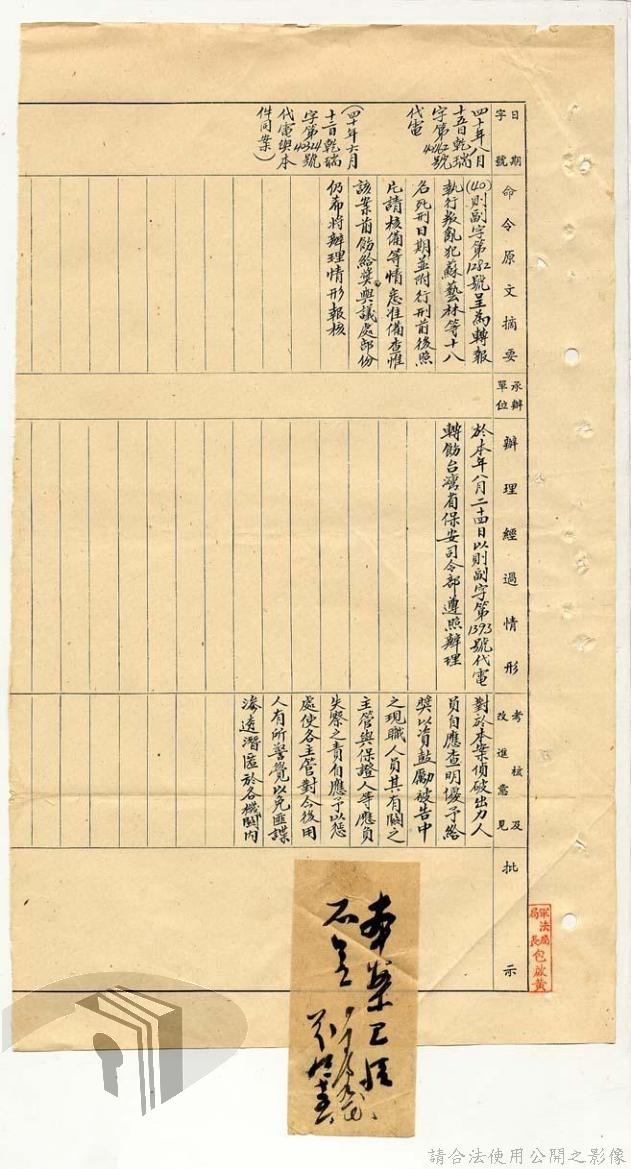 日期
字號
四十年八月
十五日乾瑞
字第
號
代電
(四十年六月
十二日乾瑞
字第
號
代電與本
件同案)
命令原文摘要
(40)則副字第1282號呈為轉報
執行叛亂犯蘇藝林等十八
名死刑日期並附行刑前後照
片請核備等情悉准備查惟
該案前飭給獎與議處部份
仍希將辦理情形報核
承辦
單位
辦理經過情形
於本年八月二十四日以則副字第1393號代電
轉飭台灣省保安司令部遵照辦理
考核及
改進意見
對於本案偵破出力人
員自應查明優予給
獎以資鼓勵被告中
之現職人員其有關之
主管與保證人等應負
失察之責自應予以懲
處使各主管對今後用
人有所警覺以免匪諜
滲透潛匿於各機關內
批示
軍法局
局長包啟黃
本案已經
請合法使用公開之影像